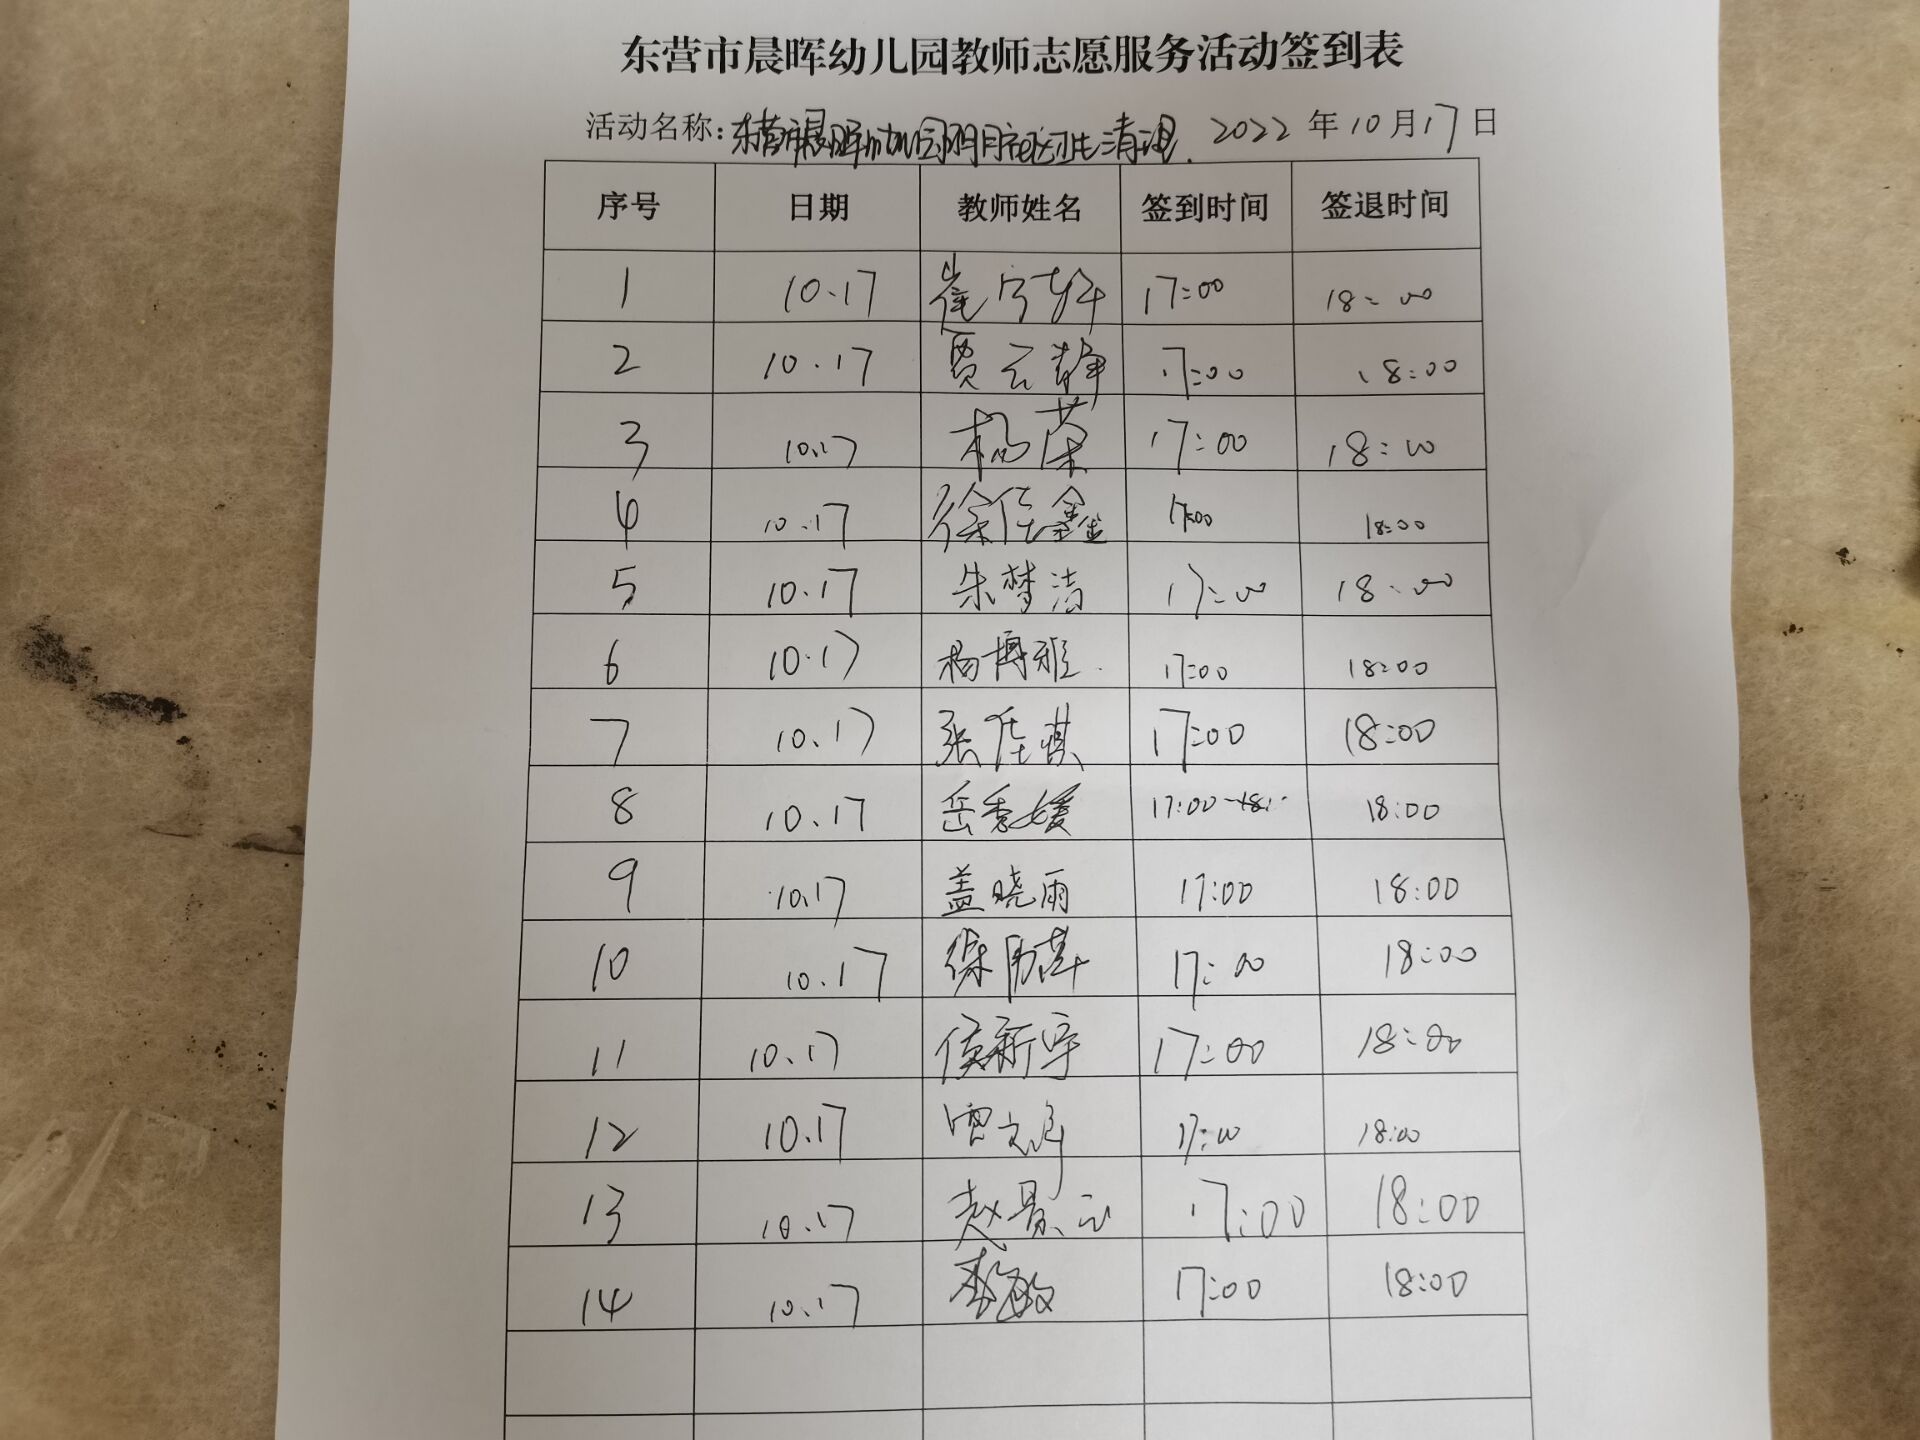 东营市晨晖幼儿园教师志愿服务活动签到表
活动名称：东营市晨晖幼儿园 卫生清理. 2022 年 10 月 17 日
序号 日期 教师姓名 签到时间 签退时间
1 10.17 崔宁 17:00 18:00
2 10.17 贾云静 17:00 18:00
3 10.17 杨荣 17:00 18:00
4 10.17 徐佳鑫 17:00 18:00
5 10.17 朱梦洁 17:00 18:00
6 10.17 杨博雅 17:00 18:00
7 10.17 张佳琪 17:00 18:00
8 10.17 岳秀媛 17:00 18:00
9 10.17 盖晓雨 17:00 18:00
10 10.17 徐 17:00 18:00
11 10.17 侯新宇 17:00 18:00
12 10.17 17:00 18:00
13 10.17 赵景云 17:00 18:00
14 10.17 李敏 17:00 18:00